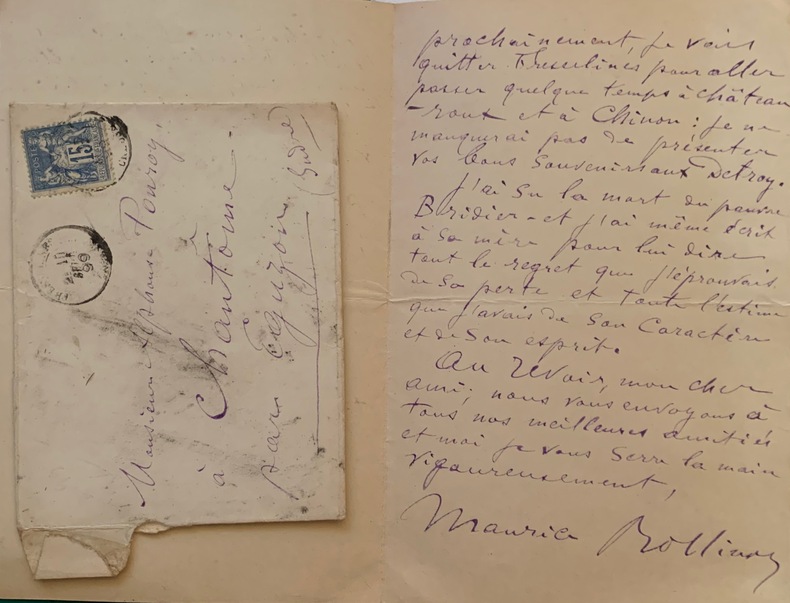 15
Monsieur Alphonse Ponroy,
à Chantôme
par Eguzon (Indre)
prochainement, je vais
quitter Fresselines pour aller
passer quelque temps à Château
-roux et à Chinon : je ne
manquerai pas de présenter
vos bons souvenirs aux Detroy.
J'ai su la mort du pauvre
Bridier - et j'ai même écrit
à sa mère pour lui dire
tout le regret que j'éprouvais
de sa perte et toute l'estime
que j'avais de son caractère
et de son esprit.
Au revoir, mon cher
ami ; nous vous envoyons à
tous nos meilleures amitiés
et moi je vous serre la main
vigoureusement,
Maurice Rollinat